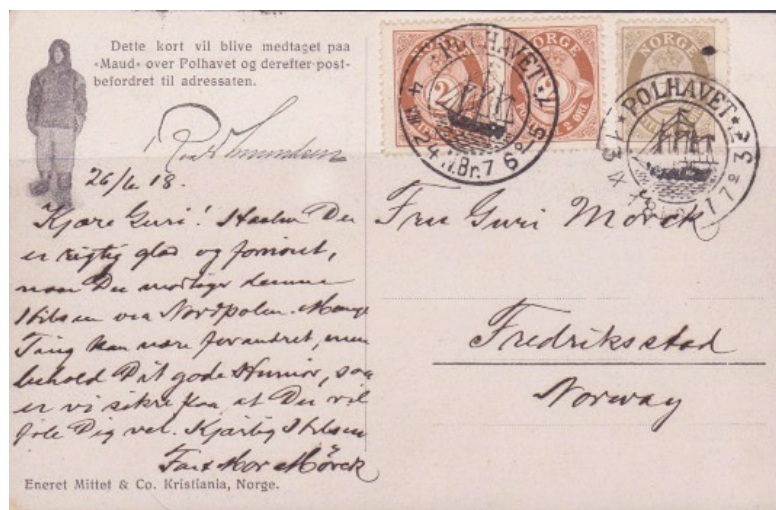 Dette kort vil blive medtaget paa
«Maud» over Polhavet og derefter post-
befordret til adressaten.
Roald Amundsen
26/6 18.
Kjære Guri! Haaber Du
er rigtig glad og fornøiet,
naar Du modtager denne
Hilsen via Nordpolen. Mange
Ting kan være forandret, men
behold Dit gode Humør, saa
er vi sikre paa at Du vil
føle Dig vel. Kjærlig Hilsen
Mor Mörck
Eneret Mittet & Co. Kristiania, Norge.
NORGE
NORGE
2 ØRE
POLHAVET
4 VIII 24
NORGE
POLHAVET
Fru Guri Mörck
Fredriksstad
Norway